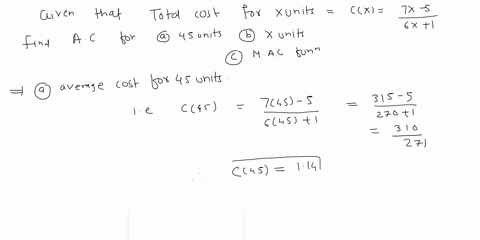 Given that Total cost for x units = C(x) = 7x-5 / 6x+1
find A.C for ⓐ 45 units ⓑ x units
ⓒ M.A.C funⁿ
⇒ ⓐ average cost for 45 units.
i.e C(45) = 7(45)-5 / 6(45)+1 = 315-5 / 270+1
= 310 / 271
∴ C(45) = 1.14